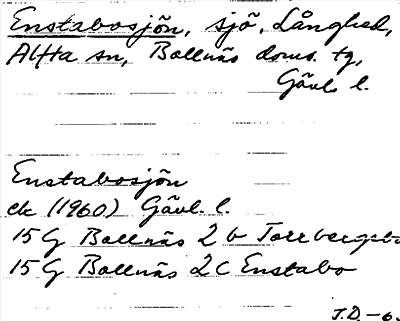 Enstabosjön, sjö, Långhed,
Alfta sn, Bollnäs doms. tg,
Gävl. l.
Enstabosjön
ek (1960) Gävl. l.
15G Bollnäs 2 b Torrbergsbo
15G Bollnäs 2C Enstabo
J.D.-6